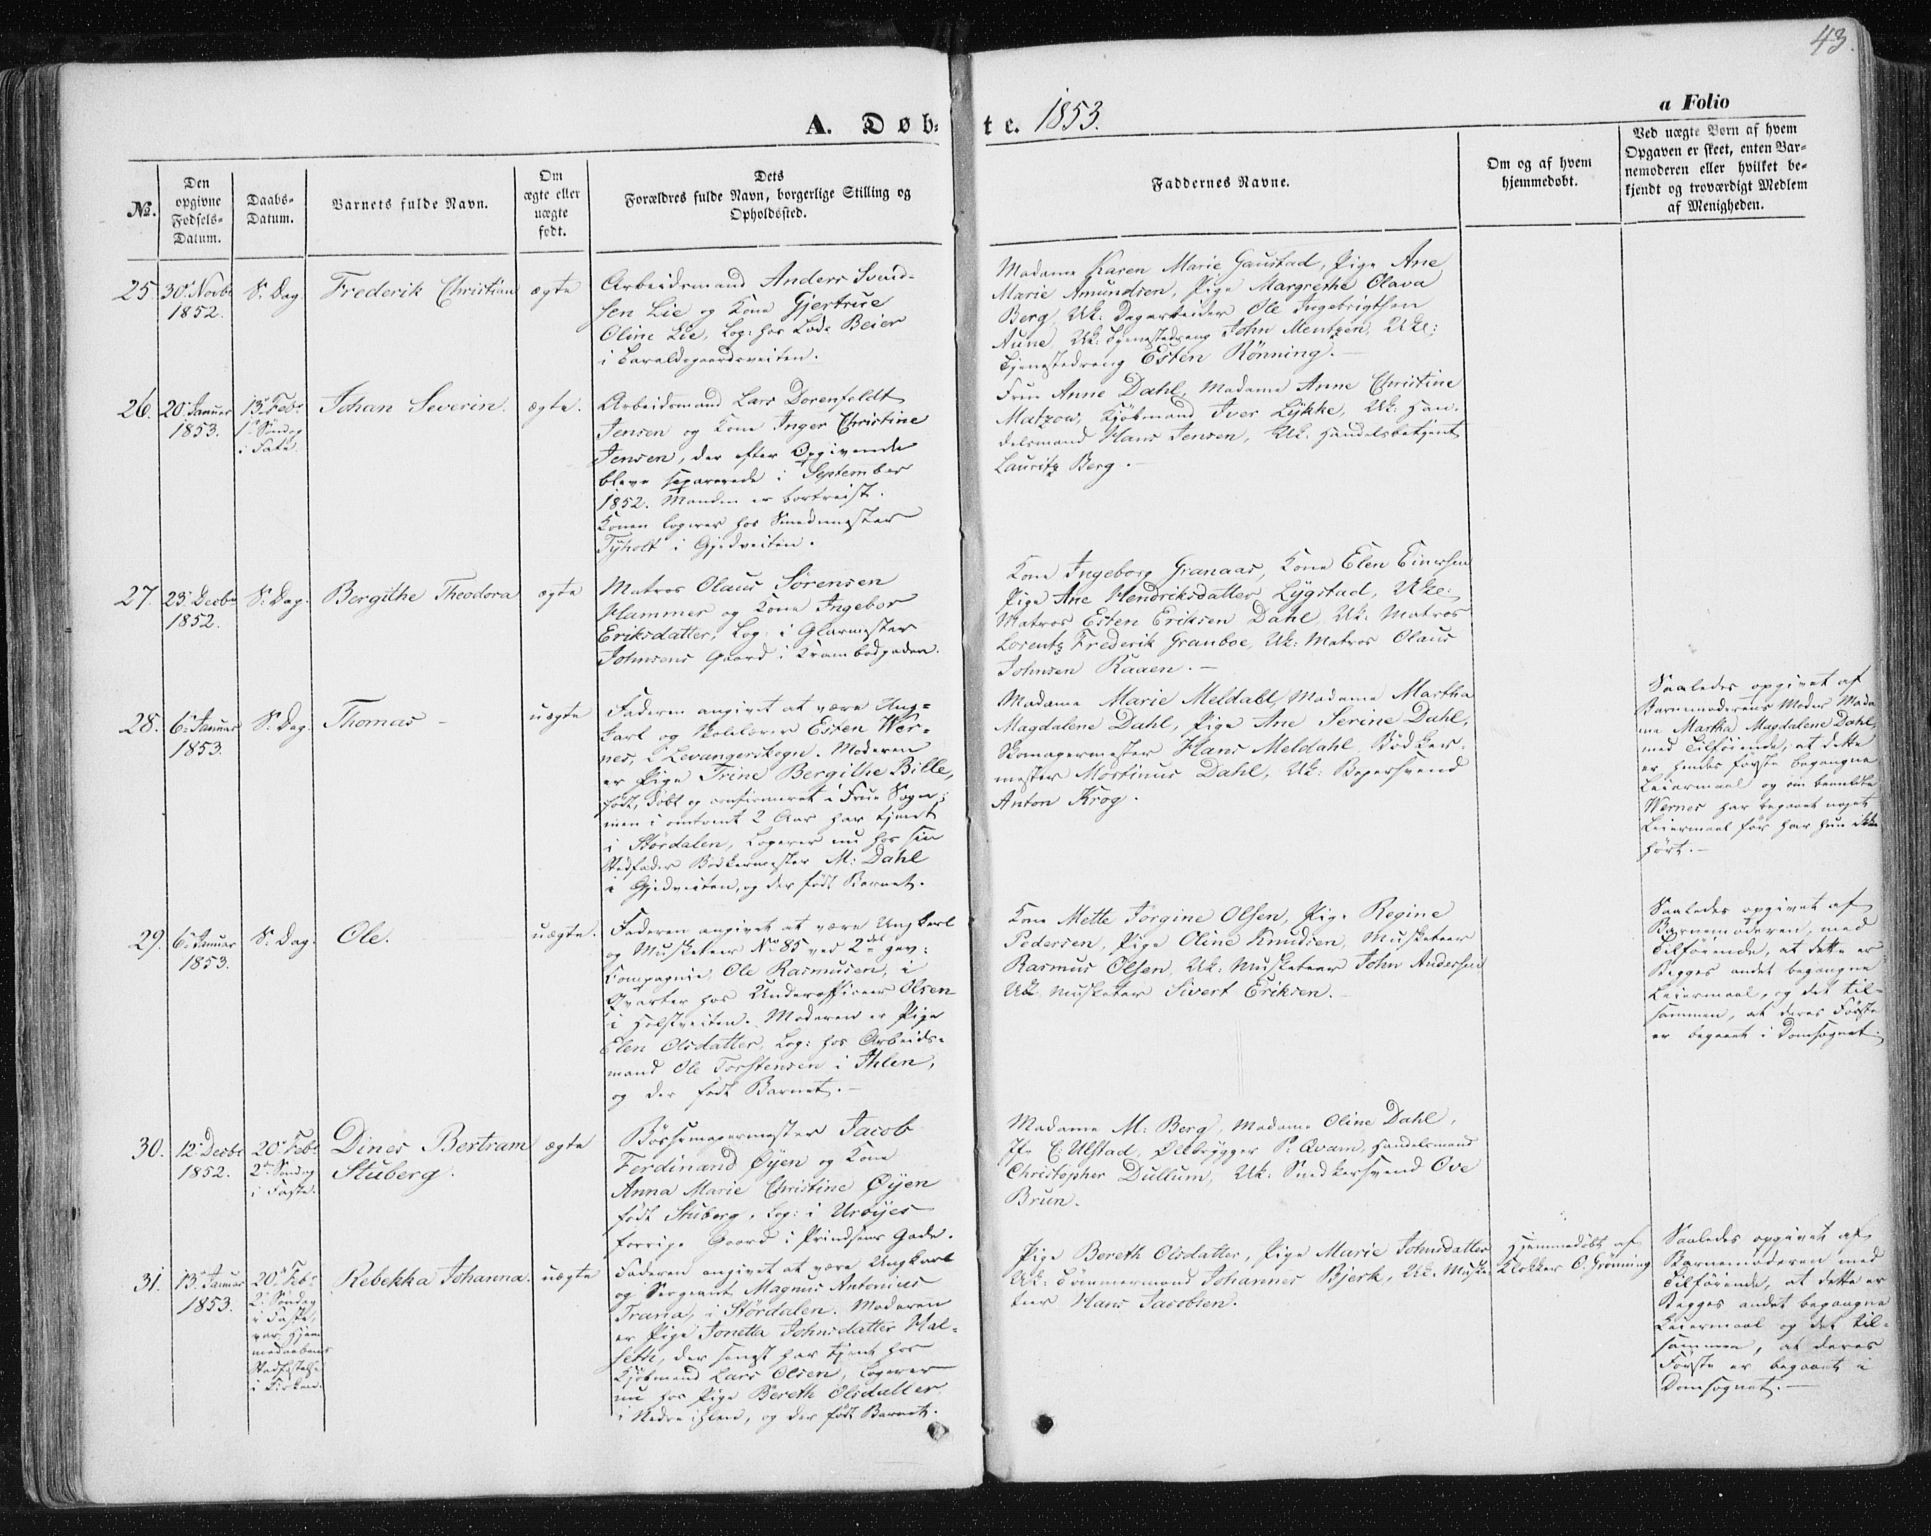 43.
a Folio
A. Døb-
te. 1853.
No.
Den
opgivne
Fødsels-
Datum.
Daabs-
Datum.
Barnets fulde Navn.
Om
ægte eller
uægte
født.
Dets
Forældres fulde Navn, borgerlige Stilling og
Opholdssted.
Faddernes Navne.
Om og af hvem
hjemmedøbt.
Ved uægte Børn af hvem
Opgaven er skeet, enten Bar-
nemoderen eller hvilket be-
kjendt og troværdigt Medlem
af Menigheden.
25.
30te Novbr
1852.
S. Dag.
Frederik Christian
ægte
Arbeidsmand Anders Svend-
sen Lie og Kone Gjertrue
Oline Lie, Log: hos Beier
i
Madame Karen Marie Gaustad, Pige Ane
Marie Amundsen, Pige Margrethe Olava
Berg, Uk: Dagarbeider Ole Ingebrigtsen
Aune, Uk: Tjenestedreng John Mentzen, Uk:
Tjenestedreng Esten Rønning.
26.
20de Januar
1853.
13de Febr
1ste Søndag
i Faste
Johan Severin.
ægte.
Arbeidsmand Lars Dorenfeldt
Jensen og Kone Inger Christine
Jensen, der efter Opgivende
bleve separerede i September
1852. Manden er bortreist.
Konen logerer hos Smedmester
Tyholt i Gjedveiten.
Frue Anne Dahl, Madame Anne Christine
Matzow, Kjøbmand Iver Lykke, Uk: Han-
delsmand Hans Jensen, Uk: Handelsbetjent
Lauritz Berg.
27.
23de Decbr
1852.
S. Dag.
Bergithe Theodora
ægte
Matros Olaus Sørensen
Hammer og Kone Ingebor
Eriksdatter, Log: i Glarmester
Johnsens Gaard i Krambodgaden.
Kone Ingeborg Granaas, Kone Elen Einersen
Pige Ane Hendriksdatter Lygstad, Uk:
Matros Esten Eriksen Dahl, Uk: Matros
Lorentz Frederik Granboe, Uk: Matros Olaus
Johnsen Raaen.
28.
6te Januar
1853.
S. Dag.
Thomas
uægte
Faderen angivet at være Ung-
karl og Skolelærer Esten Wer-
nes, i Levangerskogn. Moderen
er Pige Trine Bergithe Bille,
født, døbt og confirmeret i Frue Sogn;
men i omtrent 2 Aar har tjent
i Størdalen, Logerer nu hos sin
Stedfader Bødkermester M: Dahl
i Gjedveiten, og der født Barnet.
Madame Marie Meldahl, Madame Martha
Magdalene Dahl, Pige Ane Serine Dahl,
Skomagermester Hans Meldahl, Bødker-
mester Mortinus Dahl, Uk: Bagersvend
Anton Krog.
Saaledes opgivet af
Barnemoderens Moder Mada
me Martha Magdalene Dahl,
med Tilføiende, at dette
er hendes første begangne
Leiermaal og om bemeldte
Wernes har begaaet noget
Leiermaal før har hun ikke
hørt.
29.
6te Januar
1853.
S. Dag.
Ole.
uægte.
Faderen angivet at være Ungkarl
og Musketeer No 85 ved 2det gev:
Compagnie, Ole Rasmusen, i
Qvarter hos Underofficeer Olsen
i Holstveiten. Moderen er Pige
Elen Olsdatter, Log: hos Arbeids-
mand Ole Torstensen i Ihlen,
og der født Barnet.
Kone Mette Jørgine Olsen, Pige Regine
Pedersen, Pige Oline Knudsen, Musketeer
Rasmus Olsen, Uk: Musketeer John Andersen
Uk: Musketeer Sivert Eriksen.
Saaledes opgivet af
Barnemoderen, med
Tilføiende, at dette er
Begges andet begangne
Leiermaal, og det til-
sammen, at deres Første
er begaaet i Domsognet.
30.
12te Decbr
1852.
20de Febr
2den Søndag
i Faste.
Dines Bertram
Stuberg.
ægte
Bøssemagermester Jacob
Ferdinand Øyen og Kone
Anna Marie Christine Øyen
født Stuberg, Log: i Urøyes
forrige Gaard i Prindsens Gade.
Madame M: Berg, Madame Oline Dahl,
Jfr E: Ulstad, Ølbrygger P: Qvam, Handelsmand
Christopher Dullum, Uk: Snedkersvend Ove
Brun.
31.
13de Januar
1853.
20de Febr
2: Søndag
i Faste,
var Hjem
medaabens
Stadfæstelse
i Kirken.
Rebekka Johanna.
uægte
Faderen angivet at være Ungkarl
og Sergeant Magnus Antonius
Trana, i Størdalen. Moderen
er Pige Jonetta Johnsdatter Hal-
seth, der sengst har tjent hos
Kjøbmand Lars Olsen, Logerer
nu hos Pige Bereth Olsdatter
i Nedre ihlen, og der født Barnet.
Pige Bereth Olsdatter, Pige Marie Johnsdatter
Uk: Tømmermand Johannes Bjerk, Uk: Muske-
teer Hans Jacobsen.
Hjemmedøbt af
Klokker O. Grønning.
Saaledes opgivet af
Barnemoderen med
Tilføiende, at dette er
Begges andet begangne
Leiermaal og det til-
sammen, at deres
Første er begaaet i
Domsognet.